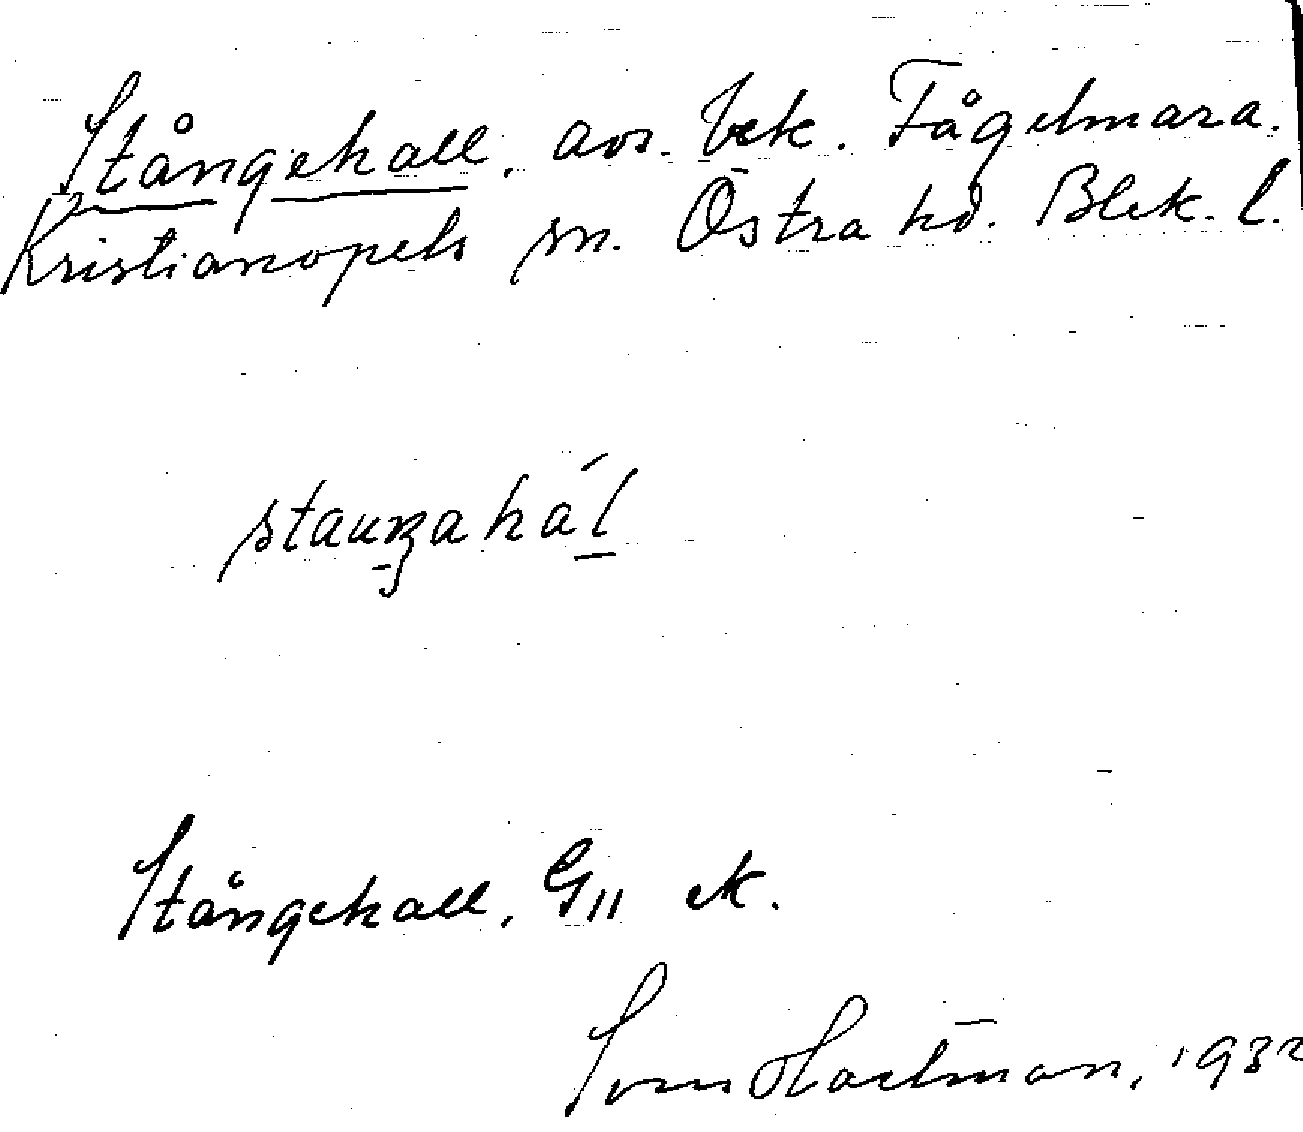 Stångehall. avs. bek. Fågelmara.
Kristianopels sn. Östra hd. Blek. l.
Stångehall, G11 ek.
Sven Hartman, 1932